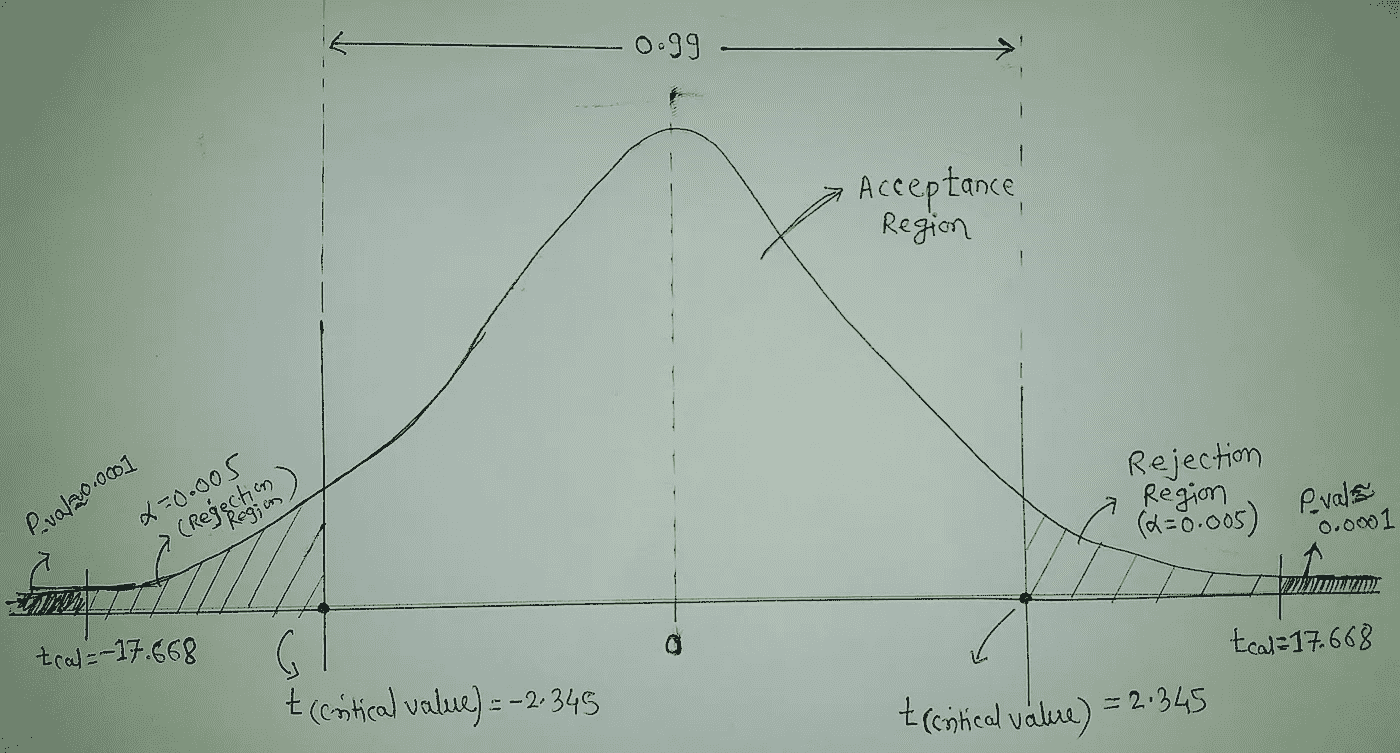 0.99
Acceptance
Region
P_val≈0.0001
α=0.005
(Rejection
Region)
Rejection
Region
(α=0.005)
P_val≈
0.0001
tcal=-17.668
0
tcal=17.668
t(critical value) = -2.345
t(critical value) = 2.345